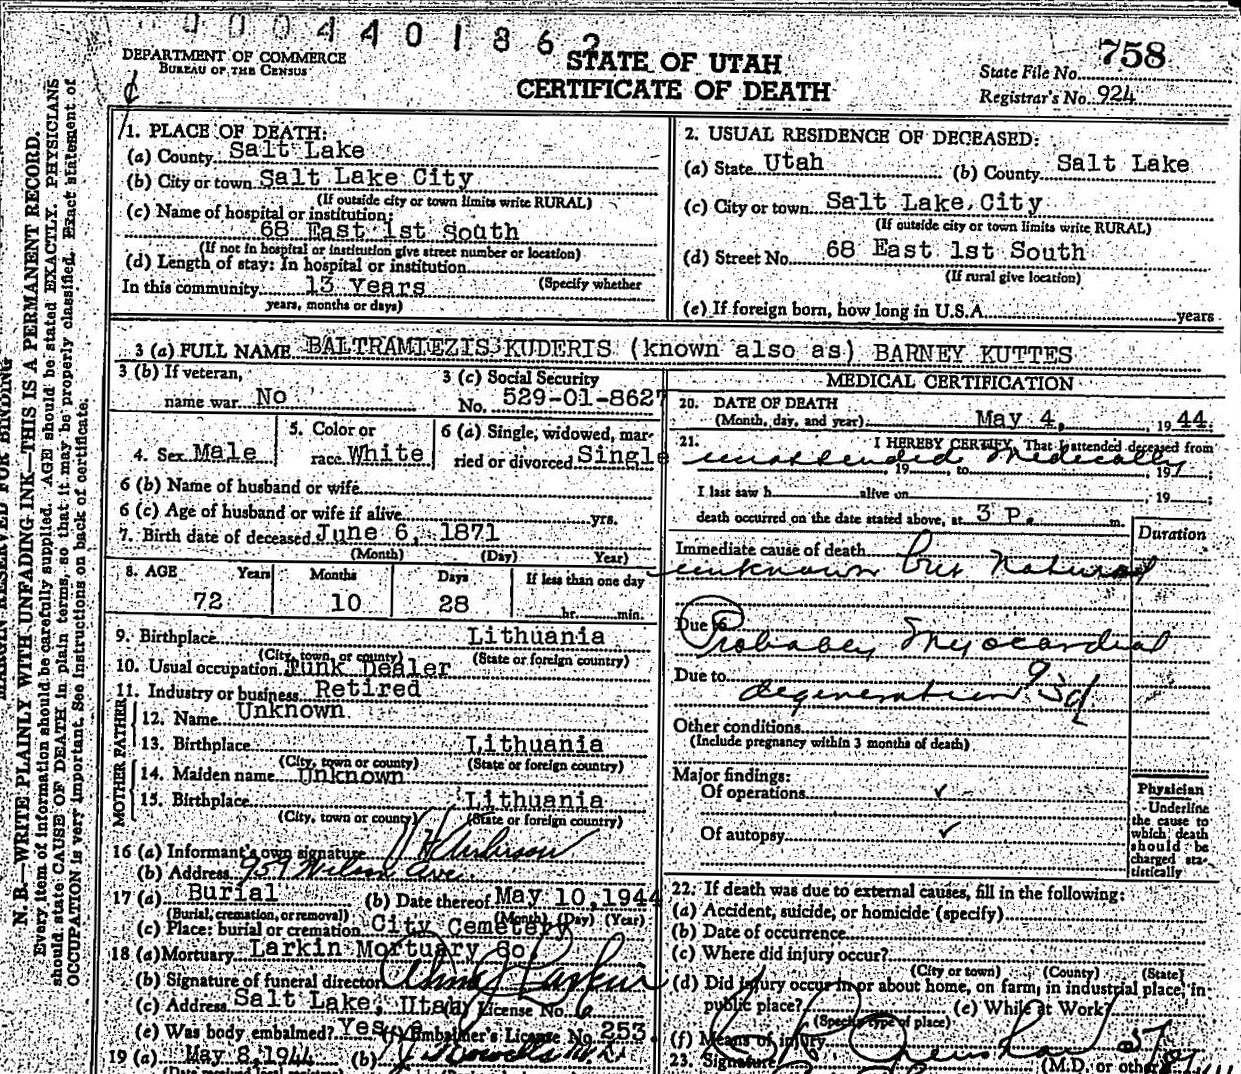 0004401862
DEPARTMENT OF COMMERCE
BUREAU OF THE CENSUS
STATE OF UTAH
CERTIFICATE OF DEATH
State File No. 758
Registrar's No. 924
N. B.—WRITE PLAINLY WITH UNFADING INK—THIS IS A PERMANENT RECORD.
Every item of information should be carefully supplied. AGE should be stated EXACTLY. PHYSICIANS
should state CAUSE OF DEATH in plain terms, so that it may be properly classified. Exact statement of
OCCUPATION is very important. See instructions on back of certificate.
1. PLACE OF DEATH:
(a) County Salt Lake
(b) City or town Salt Lake City
(If outside city or town limits write RURAL)
(c) Name of hospital or institution:
68 East 1st South
(If not in hospital or institution give street number or location)
(d) Length of stay: In hospital or institution
(Specify whether
In this community 13 Years
years, months or days)
2. USUAL RESIDENCE OF DECEASED:
(a) State Utah (b) County Salt Lake
(c) City or town Salt Lake City
(If outside city or town limits write RURAL)
(d) Street No. 68 East 1st South
(If rural give location)
(e) If foreign born, how long in U.S.A. years
3 (a) FULL NAME BALTRAMIEZIS KUDERIS (known also as) BARNEY KUTTES
3 (b) If veteran,
name war No
3 (c) Social Security
No. 529-01-8627
4. Sex Male
5. Color or
race White
6 (a) Single, widowed, mar-
ried or divorced Single
6 (b) Name of husband or wife
6 (c) Age of husband or wife if alive yrs.
7. Birth date of deceased June 6, 1871
(Month) (Day) Year)
8. AGE Years Months Days If less than one day
72 10 28 hr. min.
9. Birthplace Lithuania
(City, town, or county) (State or foreign country)
10. Usual occupation Junk Dealer
11. Industry or business Retired
FATHER
12. Name Unknown
13. Birthplace Lithuania
(City, town or county) (State or foreign country)
MOTHER
14. Maiden name Unknown
15. Birthplace Lithuania
(City, town or county) (State or foreign country)
16 (a) Informant's own signature
(b) Address 939 Wilson Ave.
17 (a) Burial (b) Date thereof May 10, 1944
(Burial, cremation, or removal) (Month) (Day) (Year)
(c) Place: burial or cremation City Cemetery
18 (a) Mortuary Larkin Mortuary Co
(b) Signature of funeral director
(c) Address Salt Lake, Utah License No. 6
(e) Was body embalmed? Yes (f) Embalmer's License No. 253
19 (a) May 8, 1944 (b)
MEDICAL CERTIFICATION
20. DATE OF DEATH
(Month, day, and year) May 4, 1944.
21. I HEREBY CERTIFY, That I attended deceased from
unattended Medically
19 , to 19
I last saw h alive on , 19 ;
death occurred on the date stated above, at 3 P. m.
Duration
Immediate cause of death
unknown but Natural
Due to
Probably Myocardial
Due to
degeneration 93d
Other conditions
(Include pregnancy within 3 months of death)
Major findings:
Of operations ✓
Of autopsy ✓
Physician
Underline
the cause to
which death
should be
charged sta-
tistically
22. If death was due to external causes, fill in the following:
(a) Accident, suicide, or homicide (specify)
(b) Date of occurrence
(c) Where did injury occur?
(City or town) (County) (State)
(d) Did injury occur in or about home, on farm, in industrial place, in
public place? (e) While at Work
(Specify type of place)
(f) Means of injury
23. Signature (M.D. or other)